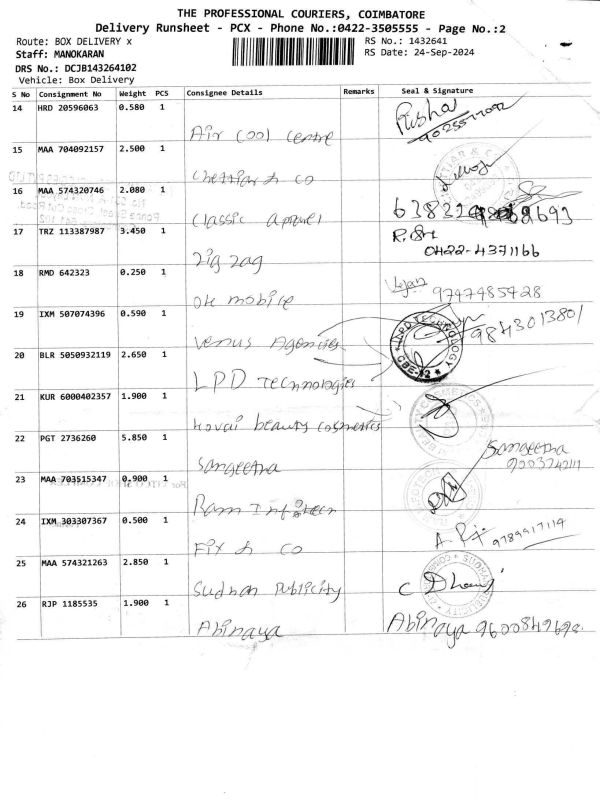 THE PROFESSIONAL COURIERS, COIMBATORE
Delivery Runsheet - PCX - Phone No.:0422-3505555 - Page No.:2
Route: BOX DELIVERY x RS No.: 1432641
Staff: MANOKARAN RS Date: 24-Sep-2024
DRS No.: DCJB143264102
Vehicle: Box Delivery
S No Consignment No Weight PCS Consignee Details Remarks Seal & Signature
14 HRD 20596063 0.580 1
Air Cool Centre
15 MAA 704092157 2.500 1
Chettiar & Co
16 MAA 574320746 2.080 1
Classic Apparel
17 TRZ 113387987 3.450 1
0422-4371166
Zig Zag
18 RMD 642323 0.250 1
9747485728
OM Mobile
19 IXM 507074396 0.590 1
9843013801
Venus Agencies
LPD TECHNOLOGY
CBE-12
20 BLR 5050932119 2.650 1
LPD Technologies
21 KUR 6000402357 1.900 1
Kovai beauty cosmetics
22 PGT 2736260 5.850 1
Sangeetha
Sangeetha
23 MAA 703515347 0.900 1
Ram Infotech
24 IXM 303307367 0.500 1
9789917114
Fix & Co
25 MAA 574321263 2.850 1
Sudhan Publicity
C Dhanuj
26 RJP 1185535 1.900 1
Abinaya
Abinaya 9600849698